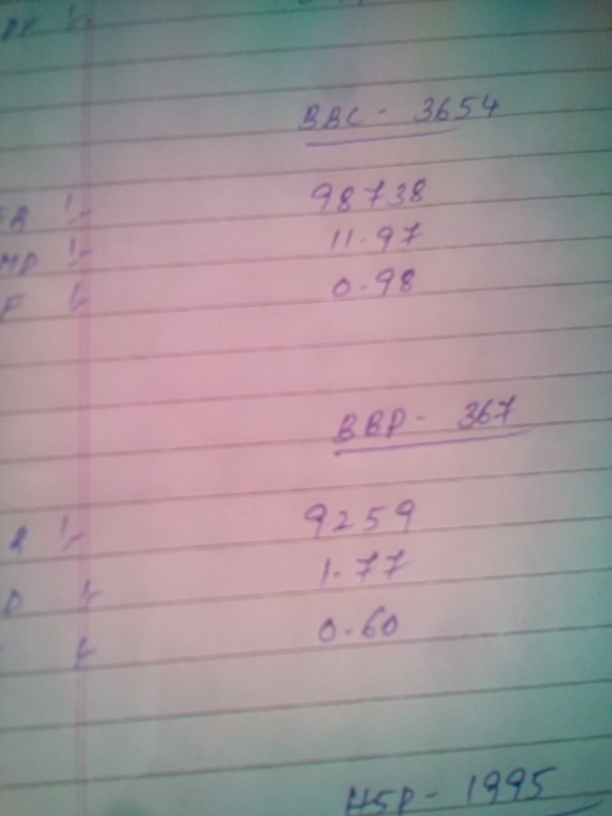 BBC - 3654
98738
MD :- 11.97
F :- 0.98
BBP - 367
R :- 9259
D :- 1.77
:- 0.60
HSP - 1995